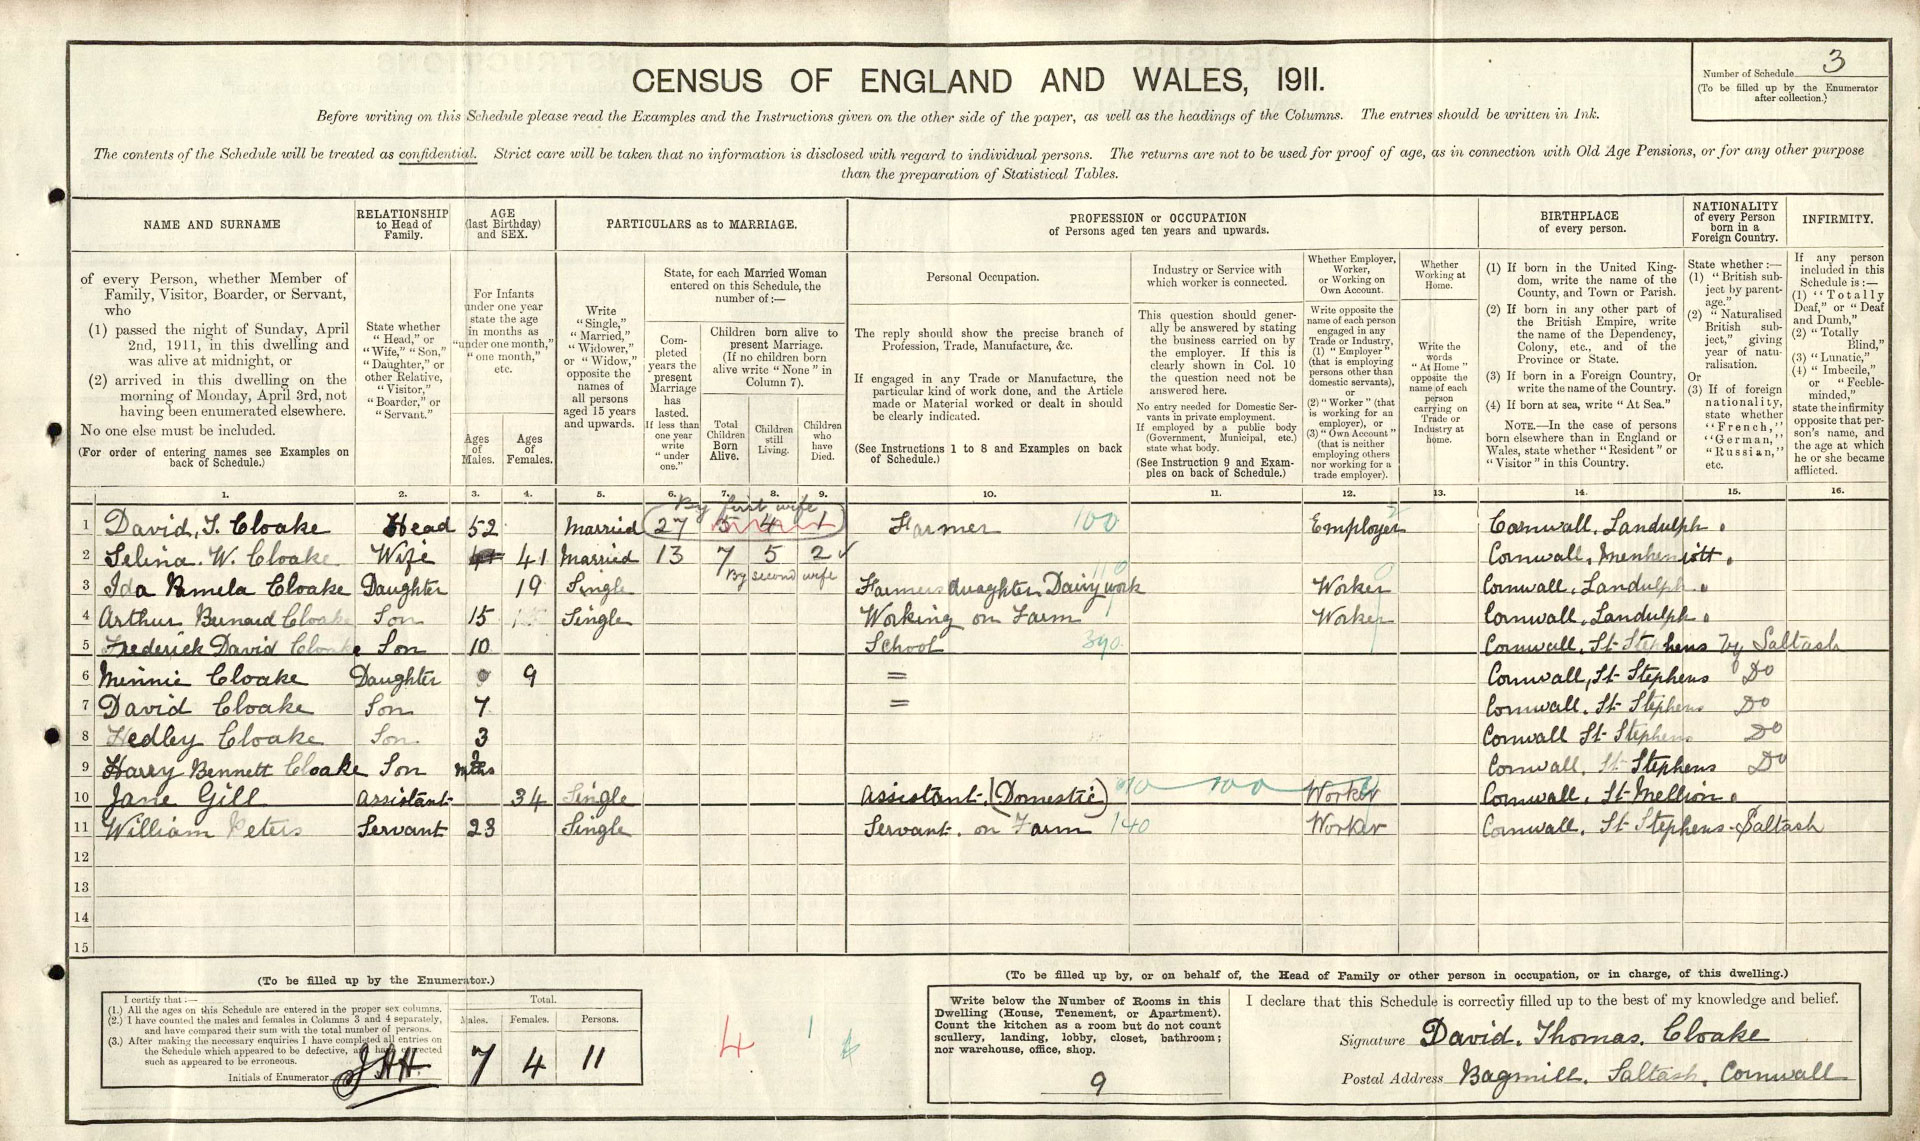 CENSUS OF ENGLAND AND WALES, 1911.
Number of Schedule 3
(To be filled up by the Enumerator after collection.)
Before writing on this Schedule please read the Examples and the Instructions given on the other side of the paper, as well as the headings of the Columns. The entries should be written in Ink.
The contents of the Schedule will be treated as confidential. Strict care will be taken that no information is disclosed with regard to individual persons. The returns are not to be used for proof of age, as in connection with Old Age Pensions, or for any other purpose
than the preparation of Statistical Tables.
NAME AND SURNAME
RELATIONSHIP to Head of Family.
AGE (last Birthday) and SEX.
PARTICULARS as to MARRIAGE.
PROFESSION or OCCUPATION of Persons aged ten years and upwards.
BIRTHPLACE of every person.
NATIONALITY of every Person born in a Foreign Country.
INFIRMITY.
of every Person, whether Member of Family, Visitor, Boarder, or Servant, who
(1) passed the night of Sunday, April 2nd, 1911, in this dwelling and was alive at midnight, or
(2) arrived in this dwelling on the morning of Monday, April 3rd, not having been enumerated elsewhere.
No one else must be included.
(For order of entering names see Examples on back of Schedule.)
State whether "Head," or "Wife," "Son," "Daughter," or other Relative, "Visitor," "Boarder," or "Servant."
For Infants under one year state the age in months as "under one month," "one month," etc.
Ages of Males.
Ages of Females.
Write "Single," "Married," "Widower," or "Widow," opposite the names of all persons aged 15 years and upwards.
State, for each Married Woman entered on this Schedule, the number of:—
Completed years the present Marriage has lasted. If less than one year write "under one."
Children born alive to present Marriage. (If no children born alive write "None" in Column 7).
Total Children Born Alive.
Children still Living.
Children who have Died.
Personal Occupation.
The reply should show the precise branch of Profession, Trade, Manufacture, &c.
If engaged in any Trade or Manufacture, the particular kind of work done, and the Article made or Material worked or dealt in should be clearly indicated.
(See Instructions 1 to 8 and Examples on back of Schedule.)
Industry or Service with which worker is connected.
This question should generally be answered by stating the business carried on by the employer. If this is clearly shown in Col. 10 the question need not be answered here.
No entry needed for Domestic Servants in private employment. If employed by a public body (Government, Municipal, etc.) state what body.
(See Instruction 9 and Examples on back of Schedule.)
Whether Employer, Worker, or Working on Own Account.
Write opposite the name of each person engaged in any Trade or Industry,
(1) "Employer" (that is employing persons other than domestic servants), or
(2) "Worker" (that is working for an employer), or
(3) "Own Account" (that is neither employing others nor working for a trade employer).
Whether Working at Home.
Write the words "At Home" opposite the name of each person carrying on Trade or Industry at home.
(1) If born in the United Kingdom, write the name of the County, and Town or Parish.
(2) If born in any other part of the British Empire, write the name of the Dependency, Colony, etc., and of the Province or State.
(3) If born in a Foreign Country, write the name of the Country.
(4) If born at sea, write "At Sea."
NOTE.—In the case of persons born elsewhere than in England or Wales, state whether "Resident" or "Visitor" in this Country.
State whether:—
(1) "British subject by parentage."
(2) "Naturalised British subject," giving year of naturalisation.
Or
(3) If of foreign nationality, state whether "French," "German," "Russian," etc.
If any person included in this Schedule is:—
(1) "Totally Deaf," or "Deaf and Dumb,"
(2) "Totally Blind,"
(3) "Lunatic,"
(4) "Imbecile," or "Feeble-minded,"
state the infirmity opposite that person's name, and the age at which he or she became afflicted.
1. 2. 3. 4. 5. 6. 7. 8. 9. 10. 11. 12. 13. 14. 15. 16.
By first wife
1 David, T. Cloake Head 52 Married 27 5 4 1 Farmer 100 Employer Cornwall, Landulph
2 Selina. W. Cloake Wife 41 Married 13 7 5 2 Cornwall, Menheniott
By second wife
3 Ida Pamela Cloake Daughter 19 Single Farmers daughter Dairy work 110 Worker Cornwall, Landulph
4 Arthur Bernard Cloake Son 15 Single Working on Farm Worker Cornwall, Landulph
5 Frederick David Cloake Son 10 School 390 Cornwall, St Stephens by Saltash
6 Minnie Cloake Daughter 9 = Cornwall, St Stephens Do
7 David Cloake Son 7 = Cornwall, St Stephens Do
8 Hedley Cloake Son 3 Cornwall St Stephens Do
9 Harry Bennett Cloake Son mths Cornwall, St Stephens Do
10 Jane Gill Assistant 34 Single Assistant, (Domestic) Worker Cornwall, St Mellion
11 William Peters Servant 23 Single Servant on Farm 140 Worker Cornwall, St Stephens Saltash
12
13
14
15
(To be filled up by the Enumerator.)
I certify that:—
(1.) All the ages on this Schedule are entered in the proper sex columns.
(2.) I have counted the males and females in Columns 3 and 4 separately, and have compared their sum with the total number of persons.
(3.) After making the necessary enquiries I have completed all entries on the Schedule which appeared to be defective, and have corrected such as appeared to be erroneous.
Initials of Enumerator JHH
Total.
Males. Females. Persons.
7 4 11
4
(To be filled up by, or on behalf of, the Head of Family or other person in occupation, or in charge, of this dwelling.)
Write below the Number of Rooms in this Dwelling (House, Tenement, or Apartment). Count the kitchen as a room but do not count scullery, landing, lobby, closet, bathroom; nor warehouse, office, shop.
9
I declare that this Schedule is correctly filled up to the best of my knowledge and belief.
Signature David. Thomas. Cloake
Postal Address Bagmill. Saltash. Cornwall